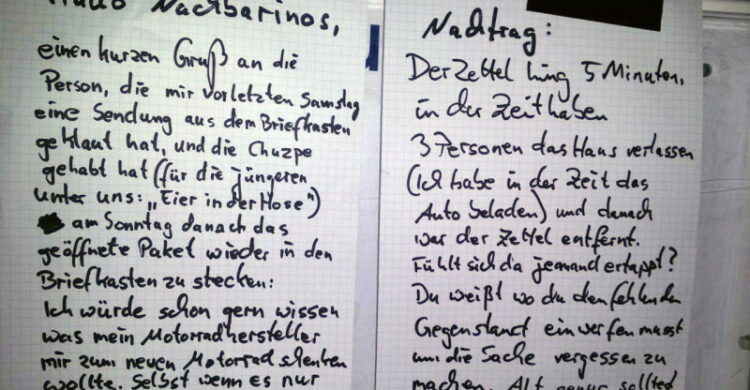 Hallo Nachbarinos,
einen kurzen Gruß an die
Person, die mir vorletzten Samstag
eine Sendung aus dem Briefkasten
geklaut hat, und die Chuzpe
gehabt hat (für die jüngeren
unter uns: „Eier in der Hose")
am Sonntag danach das
geöffnete Paket wieder in den
Briefkasten zu stecken:
Ich würde schon gern wissen
was mein Motorradhersteller
mir zum neuen Motorrad schenken
wollte. Selbst wenn es nur
Nachtrag:
Der Zettel hing 5 Minuten,
in der Zeit haben
3 Personen das Haus verlassen
(Ich habe in der Zeit das
Auto beladen) und danach
war der Zettel entfernt.
Fühlt sich da jemand ertappt?
Du weißt wo du den fehlenden
Gegenstand einwerfen musst
um die Sache vergessen zu
machen. Alt genug solltest